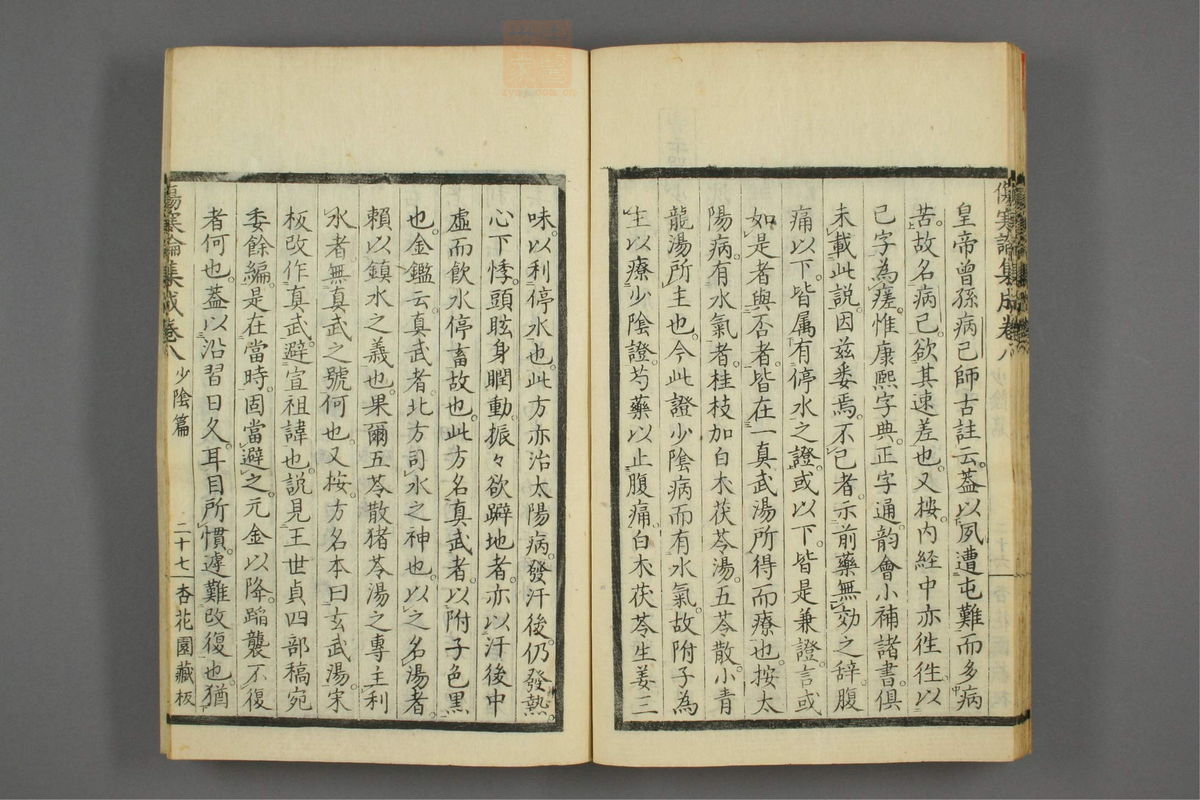 傷寒論集成卷八
皇帝曾孫病已師古註云蓋以夙遭屯難而多病
苦故名病已欲其速差也又按內経中亦徃徃以
已字為瘥惟康熙字典正字通韵會小補諸書俱
未載此説因茲委焉不已者示前藥無効之辞腹
痛以下皆属有停水之證或以下皆是兼證言或
如是者與否者皆在一真武湯所得而療也按太
陽病有水氣者桂枝加白朮茯苓湯五苓散小青
龍湯所主也今此證少陰病而有水氣故附子為
主以療少陰證芍藥以止腹痛白朮茯苓生姜三
味以利停水也此方亦治太陽病發汗後仍發熱
心下悸頭眩身瞤動振々欲擗地者亦以汗後中
虛而飲水停畜故也此方名真武者以附子色黑
也金鑑云真武者北方司水之神也以之名湯者
賴以鎮水之義也果爾五苓散猪苓湯之專主利
水者無真武之號何也又按方名本曰玄武湯宋
板改作真武避宣祖諱也説見王世貞四部稿宛
委餘編是在當時固當避之元金以降蹈襲不復
者何也蓋以沿習日久耳目所慣遽難改復也猶
傷寒論集成卷八 少陰篇 二十七 杏花園藏板